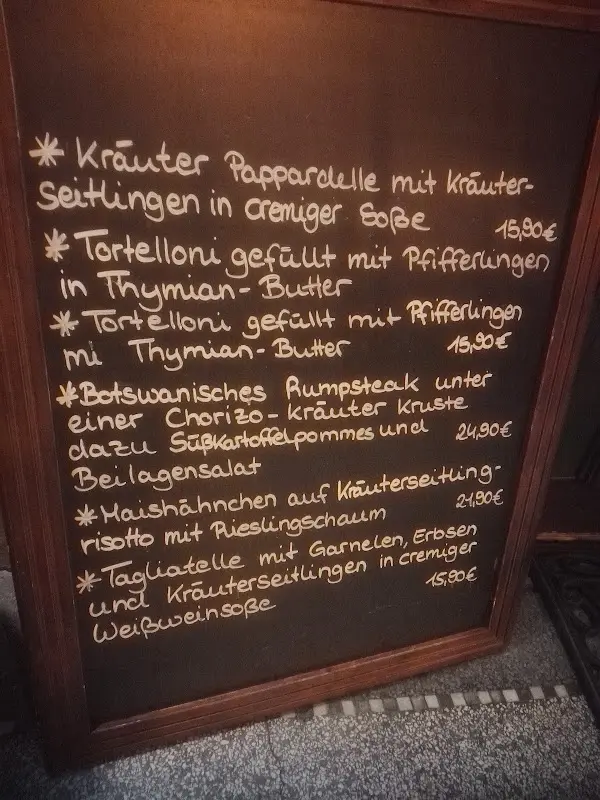 * Kräuter Pappardelle mit Kräuter-
seitlingen in cremiger Soße 15,90€
* Tortelloni gefüllt mit Pfifferlingen
in Thymian-Butter
* Tortelloni gefüllt mit Pfifferlingen
mi Thymian-Butter 15,90€
* Botswanisches Rumpsteak unter
einer Chorizo-kräuter kruste
dazu Süßkartoffelpommes und 24,90€
Beilagensalat
* Maishähnchen auf Kräuterseitling-
risotto mit Rieslingschaum 21,90€
* Tagliatelle mit Garnelen, Erbsen
und Kräuterseitlingen in cremiger
Weißweinsoße 15,90€